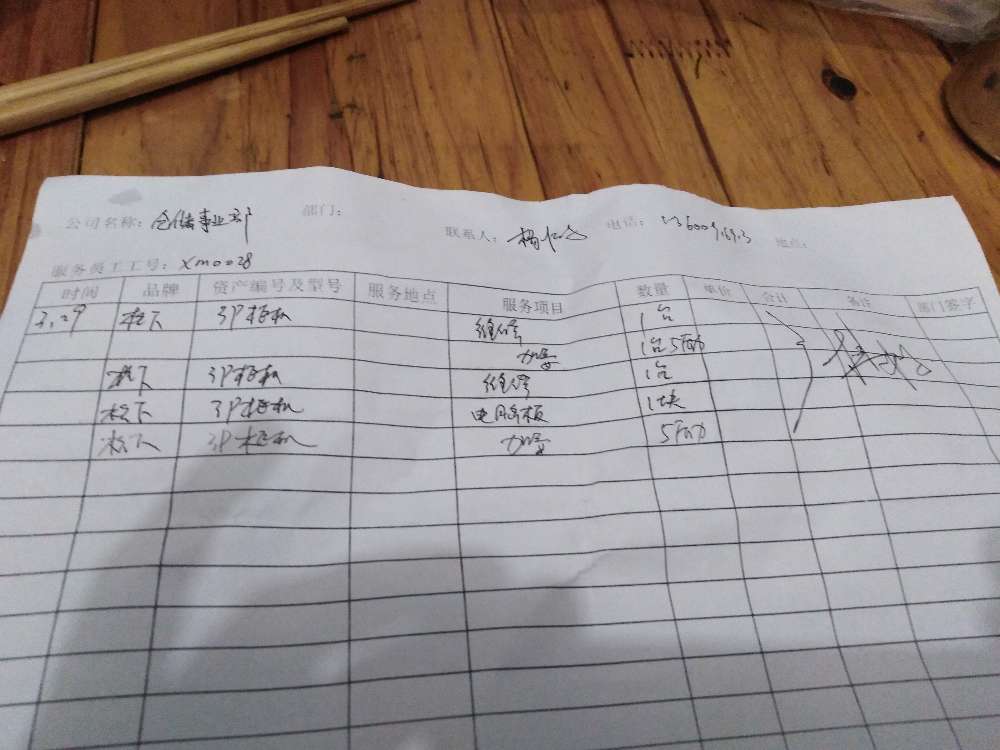 公司名称：仓储事业部 部门： 联系人： 电话： 地点：
服务员工工号：XM0028
时间 品牌 资产编号及型号 服务地点 服务项目 数量 单价 合计 备注 部门签字
3.29 松下 3P柜机 维修 1台
加雪 1台5Fao
松下 3P柜机 维修 1台
松下 3P柜机 电脑板 1块
松下 3P柜机 加雪